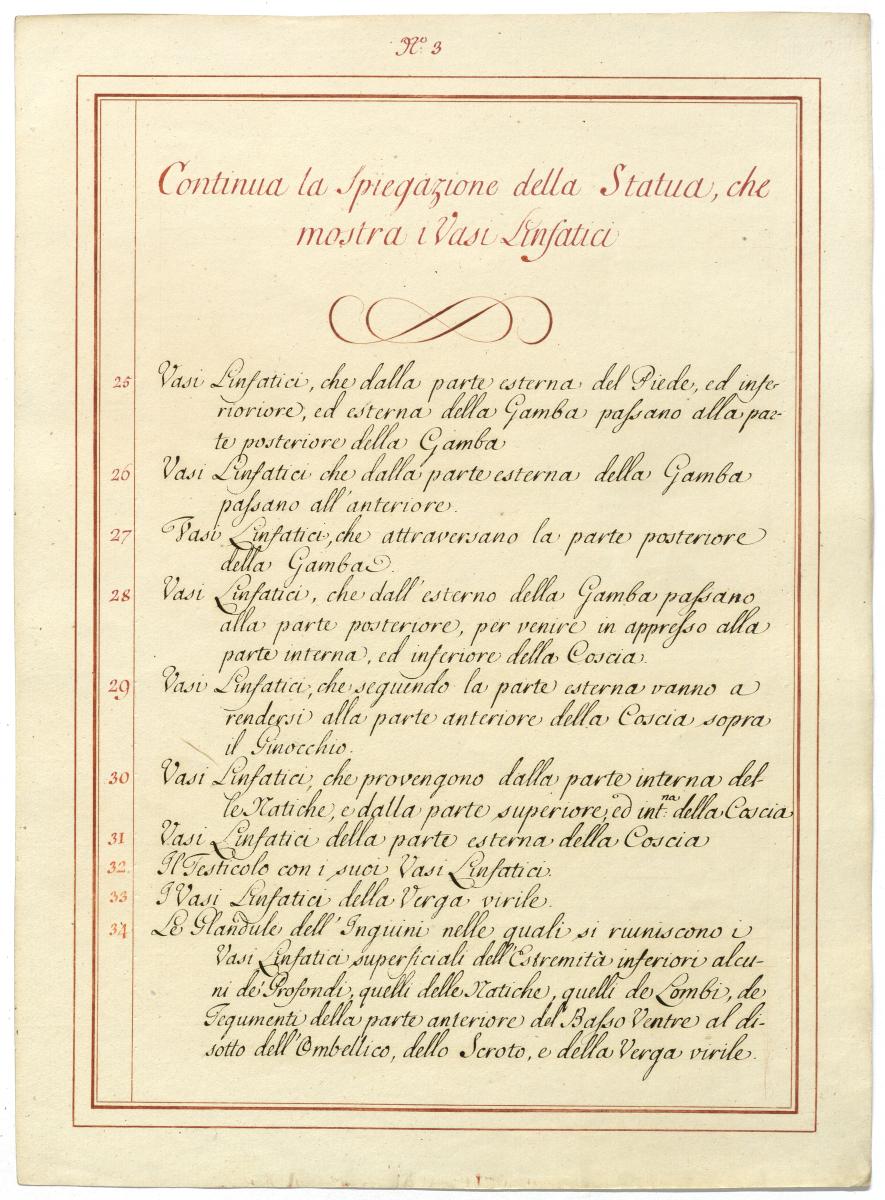 N.º 3
Continua la Spiegazione della Statua, che
mostra i Vasi Linfatici
25 Vasi Linfatici, che dalla parte esterna del Piede, ed infe-
rioriore, ed esterna della Gamba passano alla par-
te posteriore della Gamba
26 Vasi Linfatici che dalla parte esterna della Gamba
passano all'anteriore.
27 Vasi Linfatici, che attraversano la parte posteriore
della Gamba.
28 Vasi Linfatici, che dall'esterno della Gamba passano
alla parte posteriore, per venire in appresso alla
parte interna, ed inferiore della Coscia.
29 Vasi Linfatici, che seguendo la parte esterna vanno a
rendersi alla parte anteriore della Coscia sopra
il Ginocchio.
30 Vasi Linfatici, che provengono dalla parte interna del-
le Natiche, e dalla parte superiore, ed int:na della Coscia
31 Vasi Linfatici della parte esterna della Coscia
32. Il Testicolo con i suoi Vasi Linfatici.
33 I Vasi Linfatici della Verga virile.
34 Le Glandule dell'Inguini nelle quali si riuniscono i
Vasi Linfatici superficiali dell'Estremità inferiori alcu-
ni de' Profondi, quelli delle Natiche, quelli de Lombi, de
Tegumenti della parte anteriore del Basso Ventre al di-
sotto dell'Ombellico, dello Scroto, e della Verga virile.